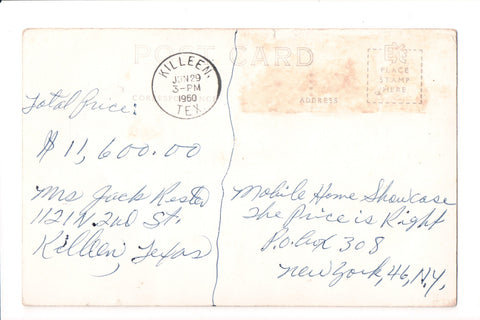 POST CARD
KILLEEN,
JUN 29
3-PM
1960
TEX.
CORRESPONDENCE
Total Price:
$11,600.00
Mrs Jack Rester
1121 N. 2nd St.
Killeen, Texas
ADDRESS
PLACE
STAMP
HERE
Mobile Home Showcase
The Price is Right
P.O. Box 308
New York, 46, N.Y.